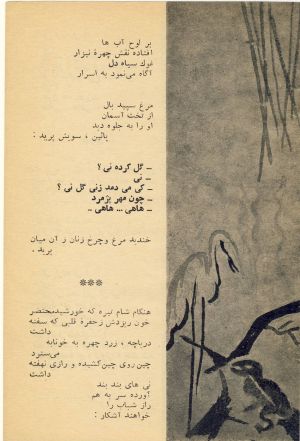 بر لوح آب ها
افتاده نقش چهرهٔ نیزار
غوك سیاه دل
آگاه می‌نمود به اسرار
مرغ سپید بال
از تخت آسمان
او را به جلوه دید
پائین ، سویش پرید :
ـ گل کرده نی ؟
ـ نی
ـ کی می دهد زنی گل نی ؟
ـ چون مهر پژمرد
ـ هاهی ... هاهی ..
خندید مرغ وچرخ زنان ز آن میان
پرید .
***
هنگام شام تیره که خورشیدمحتضر
خون ریزدش زحفرهٔ قلبی که سفته
داشت
درباچه ، زرد چهره به خونابه
می‌سترد
چین‌روی چین‌کشیده و رازی نهفته
داشت
نی های بند بند
آورده سر به هم
راز شباب را
خواهند آشکار :